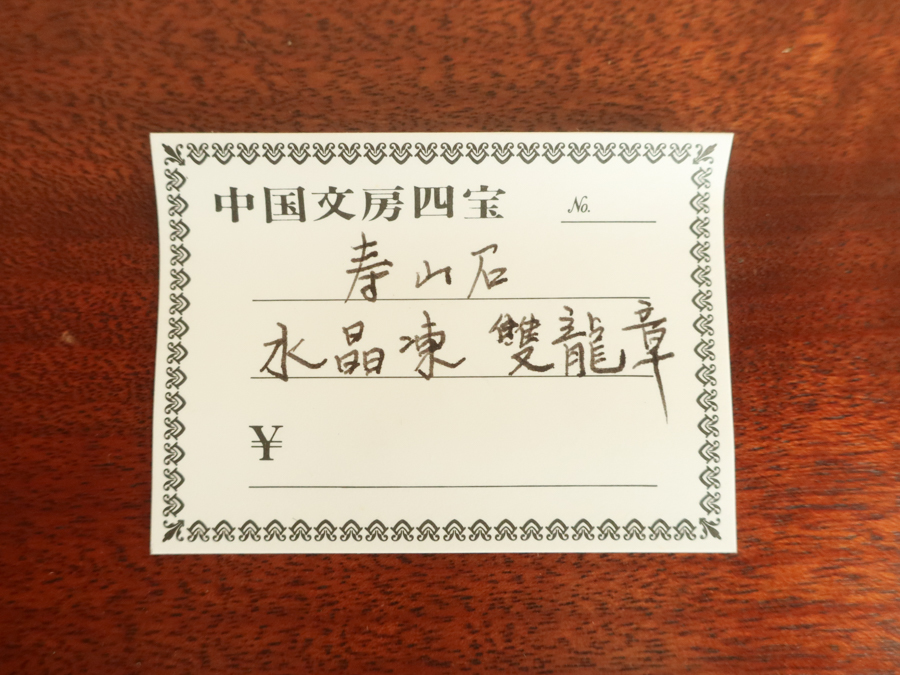 中国文房四宝 No.
寿山石
水晶凍 雙龍章
¥